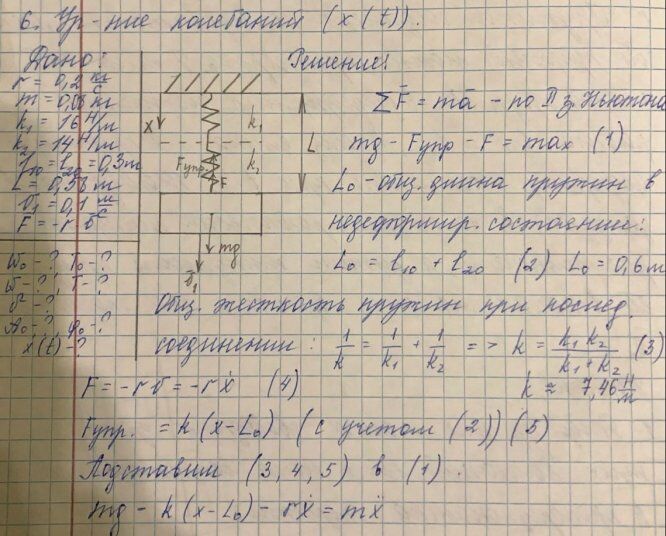 6. Ур-ние колебаний (x(t)).
Дано:
r = 0,2 кг/с
m = 0,08 кг
k₁ = 16 Н/м
k₂ = 14 Н/м
l₁₀ = l₂₀ = 0,3 м
L = 0,58 м
υ₁ = 0,1 м/с
F̄ = -r·ῡ
ω₀ - ? T₀ - ?
ω - ?, T - ?
σ - ?
A₀ - ?, φ₀ - ?
x(t) - ?
x
k₁
k₂
L
Fупр.
F
mg
ῡ₁
Решение:
∑F̄ = mā - по II з. Ньютона
mg - Fупр - F = max (1)
L₀ - общ. длина пружин в
недеформир. состоянии:
L₀ = l₁₀ + l₂₀ (2) L₀ = 0,6 м
Общ. жесткость пружин при послед.
соединении: 1/k = 1/k₁ + 1/k₂ => k = k₁k₂/(k₁+k₂) (3)
k ≈ 7,46 Н/м
F = -rυ = -rẋ (4)
Fупр. = k(x-L₀) (с учетом (2)) (5)
Подставим (3, 4, 5) в (1):
mg - k(x-L₀) - rẋ = mẍ